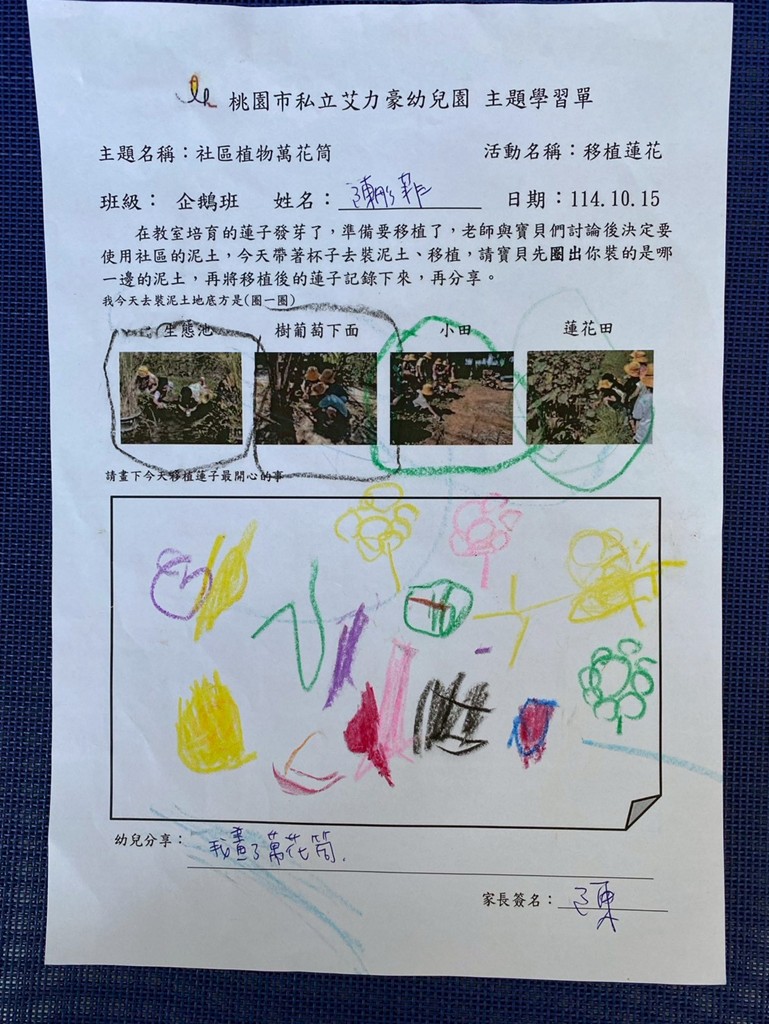 桃園市私立艾力豪幼兒園 主題學習單
主題名稱：社區植物萬花筒 活動名稱：移植蓮花
班級： 企鵝班 姓名：陳彤菲 日期：114.10.15
在教室培育的蓮子發芽了，準備要移植了，老師與寶貝們討論後決定要
使用社區的泥土，今天帶著杯子去裝泥土、移植，請寶貝先圈出你裝的是哪
一邊的泥土，再將移植後的蓮子記錄下來，再分享。
我今天去裝泥土地底方是(圈一圈)
生態池 樹葡萄下面 小田 蓮花田
請畫下今天移植蓮子最開心的事
幼兒分享： 我畫了萬花筒.
家長簽名： 陳